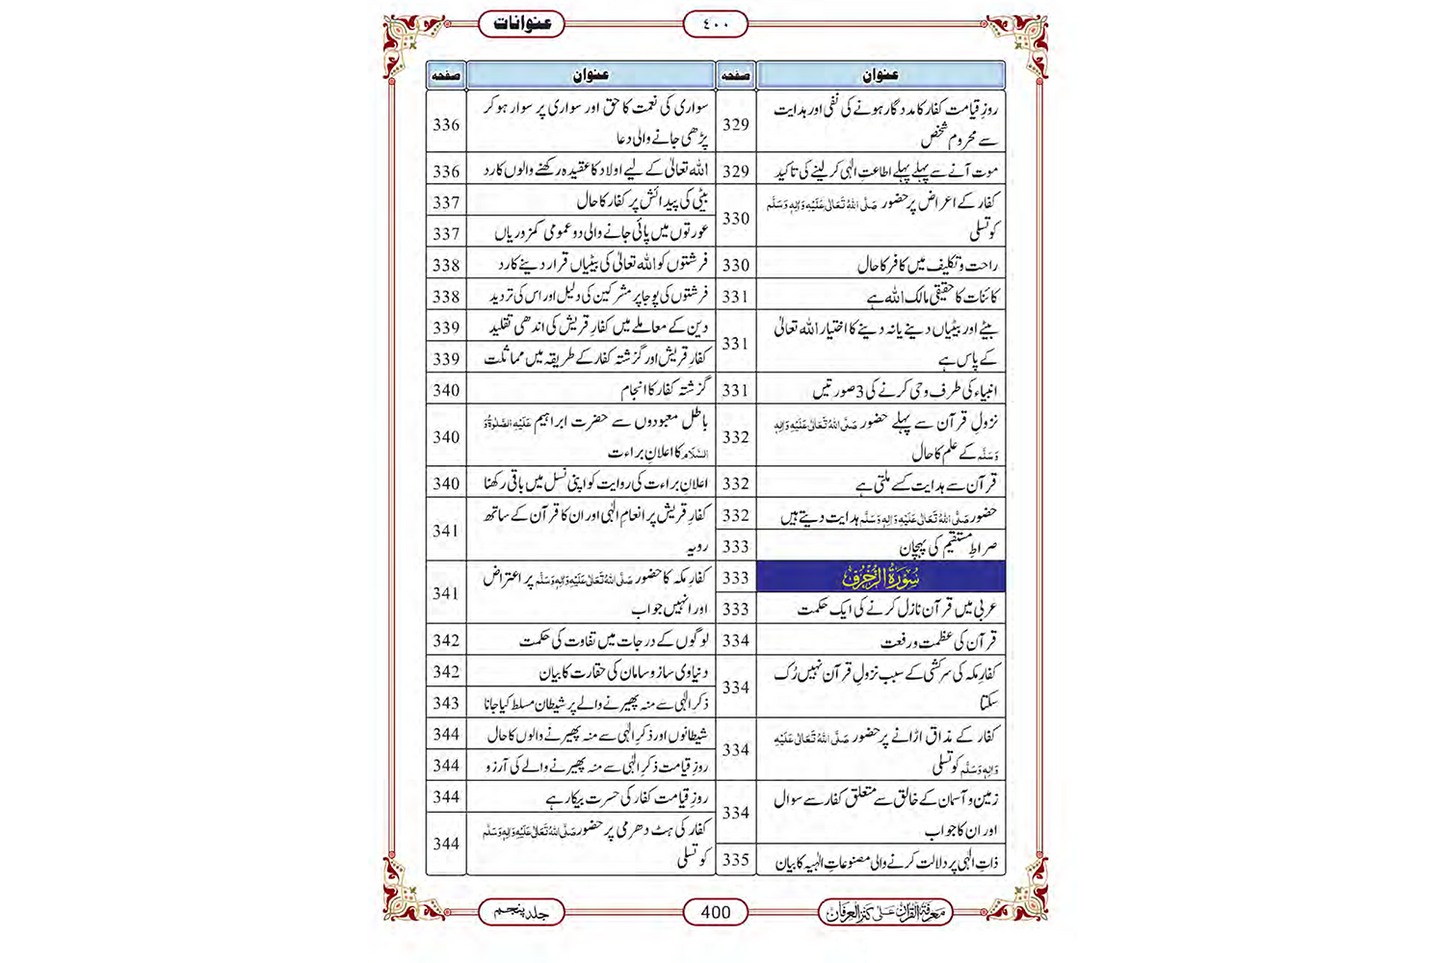 عنوانات
٤٠٠
عنوان صفحہ
روزِ قیامت کفار کا مددگار ہونے کی نفی اور ہدایت
سے محروم شخص 329
موت آنے سے پہلے پہلے اطاعتِ الٰہی کر لینے کی تاکید 329
کفار کے اعراض پر حضور صَلَّی اللہُ تَعَالٰی عَلَیْہِ وَاٰلِہٖ وَسَلَّم
کو تسلی 330
راحت و تکلیف میں کافر کا حال 330
کائنات کا حقیقی مالک اللہ ہے 331
بیٹے اور بیٹیاں دینے یا نہ دینے کا اختیار اللہ تعالیٰ
کے پاس ہے 331
انبیاء کی طرف وحی کرنے کی 3 صورتیں 331
نزولِ قرآن سے پہلے حضور صَلَّی اللہُ تَعَالٰی عَلَیْہِ وَاٰلِہٖ
وَسَلَّم کے علم کا حال 332
قرآن سے ہدایت کسے ملتی ہے 332
حضور صَلَّی اللہُ تَعَالٰی عَلَیْہِ وَاٰلِہٖ وَسَلَّم ہدایت دیتے ہیں 332
صراطِ مستقیم کی پہچان 333
سُوْرَۃُ الزُّخْرُف 333
عربی میں قرآن نازل کرنے کی ایک حکمت 333
قرآن کی عظمت و رفعت 334
کفارِ مکہ کی سرکشی کے سبب نزولِ قرآن نہیں رُک
سکتا 334
کفار کے مذاق اڑانے پر حضور صَلَّی اللہُ تَعَالٰی عَلَیْہِ
وَاٰلِہٖ وَسَلَّم کو تسلی 334
زمین و آسمان کے خالق سے متعلق کفار سے سوال
اور ان کا جواب 334
ذاتِ الٰہی پر دلالت کرنے والی مصنوعاتِ الٰہیہ کا بیان 335
عنوان صفحہ
سواری کی نعمت کا حق اور سواری پر سوار ہو کر
پڑھی جانے والی دعا 336
اللہ تعالیٰ کے لیے اولاد کا عقیدہ رکھنے والوں کا رد 336
بیٹی کی پیدائش پر کفار کا حال 337
عورتوں میں پائی جانے والی دو عمومی کمزوریاں 337
فرشتوں کو اللہ تعالیٰ کی بیٹیاں قرار دینے کا رد 338
فرشتوں کی پوجا پر مشرکین کی دلیل اور اس کی تردید 338
دین کے معاملے میں کفارِ قریش کی اندھی تقلید 339
کفارِ قریش اور گزشتہ کفار کے طریقہ میں مماثلت 339
گزشتہ کفار کا انجام 340
باطل معبودوں سے حضرت ابراہیم عَلَیْہِ الصَّلٰوۃُ وَ
السَّلَام کا اعلانِ براءت 340
اعلانِ براءت کی روایت کو اپنی نسل میں باقی رکھنا 340
کفارِ قریش پر انعامِ الٰہی اور ان کا قرآن کے ساتھ
رویہ 341
کفارِ مکہ کا حضور صَلَّی اللہُ تَعَالٰی عَلَیْہِ وَاٰلِہٖ وَسَلَّم پر اعتراض
اور انہیں جواب 341
لوگوں کے درجات میں تفاوت کی حکمت 342
دنیاوی ساز و سامان کی حقارت کا بیان 342
ذکرِ الٰہی سے منہ پھیرنے والے پر شیطان مسلط کیا جانا 343
شیطانوں اور ذکرِ الٰہی سے منہ پھیرنے والوں کا حال 344
روزِ قیامت ذکرِ الٰہی سے منہ پھیرنے والے کی آرزو 344
روزِ قیامت کفار کی حسرت بیکار ہے 344
کفار کی ہٹ دھرمی پر حضور صَلَّی اللہُ تَعَالٰی عَلَیْہِ وَاٰلِہٖ وَسَلَّم
کو تسلی 344
معرفۃ القرآن علیٰ کنز العرفان
400
جلد پنجم